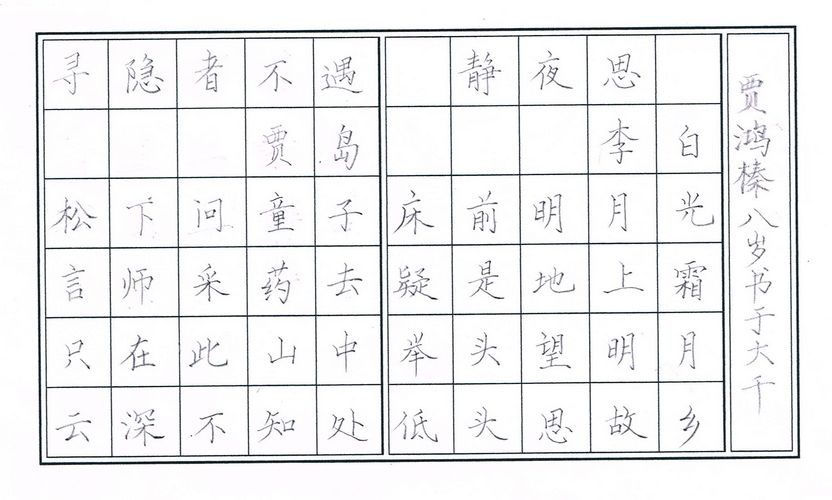 寻隐者不遇
贾岛
松下问童子
言师采药去
只在此山中
云深不知处
静夜思
李白
床前明月光
疑是地上霜
举头望明月
低头思故乡
贾鸿榛八岁书于大千